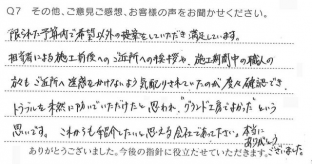 Q7 その他、ご意見ご感想、お客様の声をお聞かせください。
限られた予算内で希望以外の提案をしていただき満足しています。
担当者による施工前後へのご近所への挨拶や、施工期間中の職人の
方々もご近所へ迷惑をかけないよう気配りされていたのが度々確認でき、
トラブルを未然に防いでいただけたと思われ、"グランド工房でよかった"という
思いです。これからも紹介したいと思える会社であって下さい。本当に
ありがとうございました。
ありがとうございました。今後の指針に役立たせていただきます。